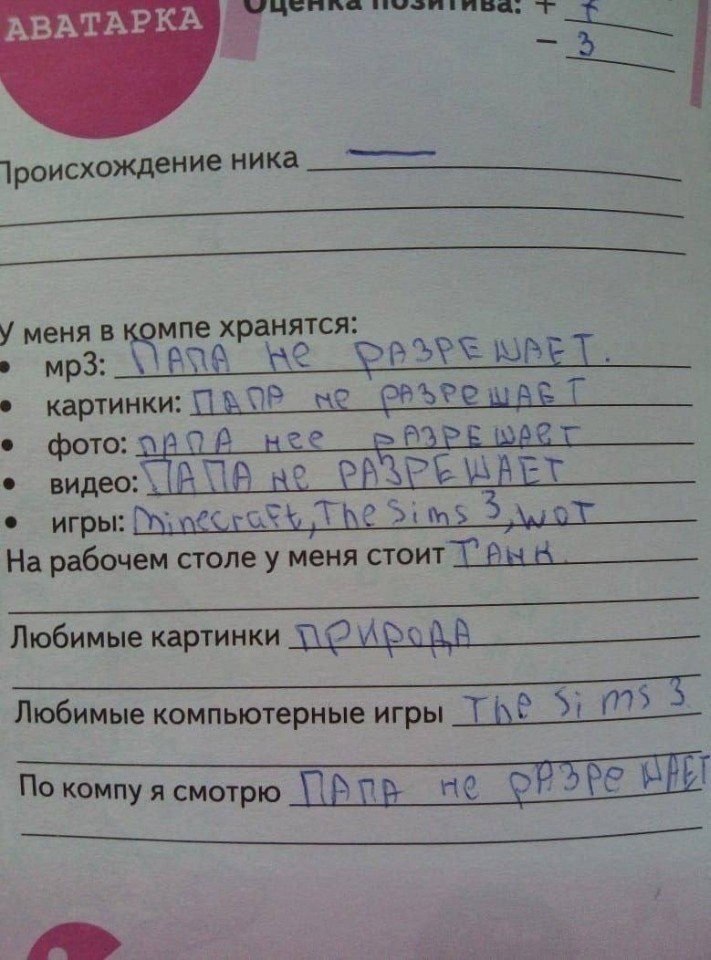 АВАТАРКА
Оценка позитива: + 7
– 3
Происхождение ника —
У меня в компе хранятся:
• мр3: ПАПА не РАЗРЕШАЕТ.
• картинки: ПАПА не РАЗРеШАЕТ
• фото: ПАПА нее РАЗРЕШАЕТ
• видео: ПАПА не РАЗРЕШАЕТ
• игры: Minecraft, The Sims 3, WOT
На рабочем столе у меня стоит ТАНК.
Любимые картинки ПРИРОДА
Любимые компьютерные игры The Sims 3
По компу я смотрю ПАПА не РАЗРеШАЕТ